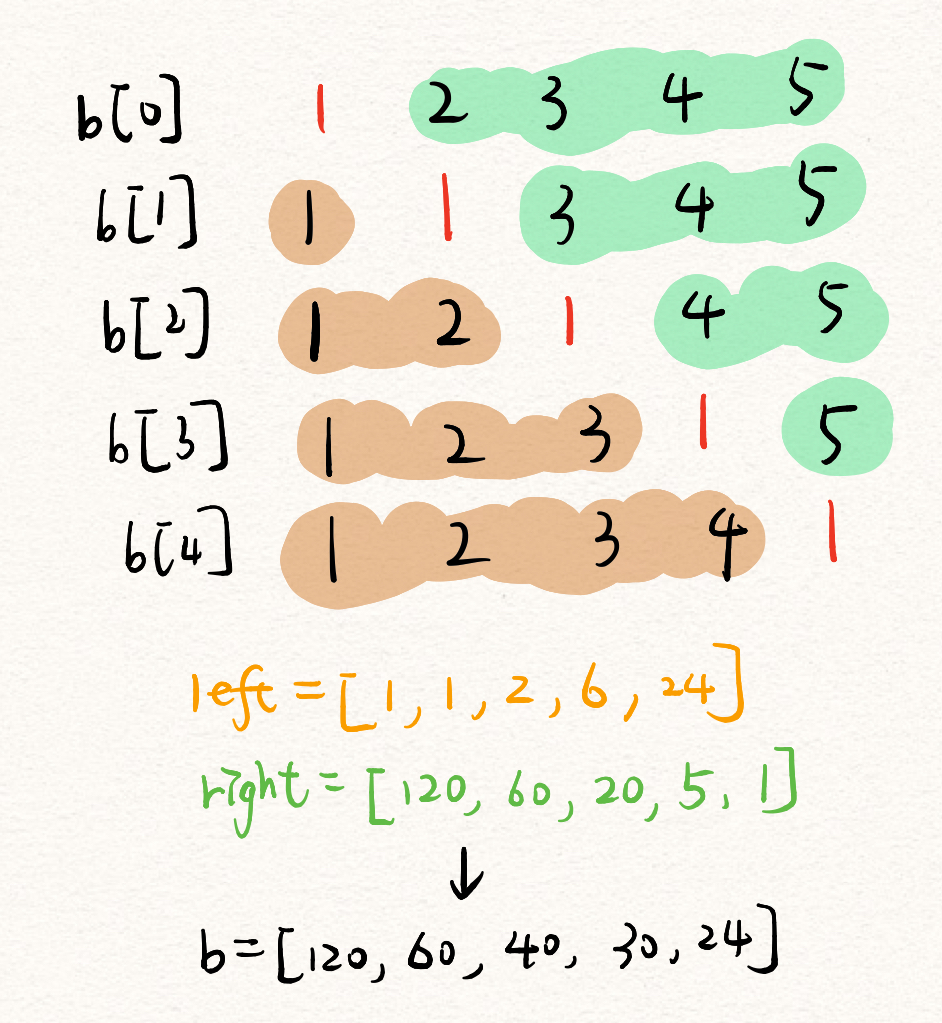 b[0] 1 2 3 4 5
b[1] 1 1 3 4 5
b[2] 1 2 1 4 5
b[3] 1 2 3 1 5
b[4] 1 2 3 4 1
left = [1, 1, 2, 6, 24]
right = [120, 60, 20, 5, 1]
↓
b = [120, 60, 40, 30, 24]